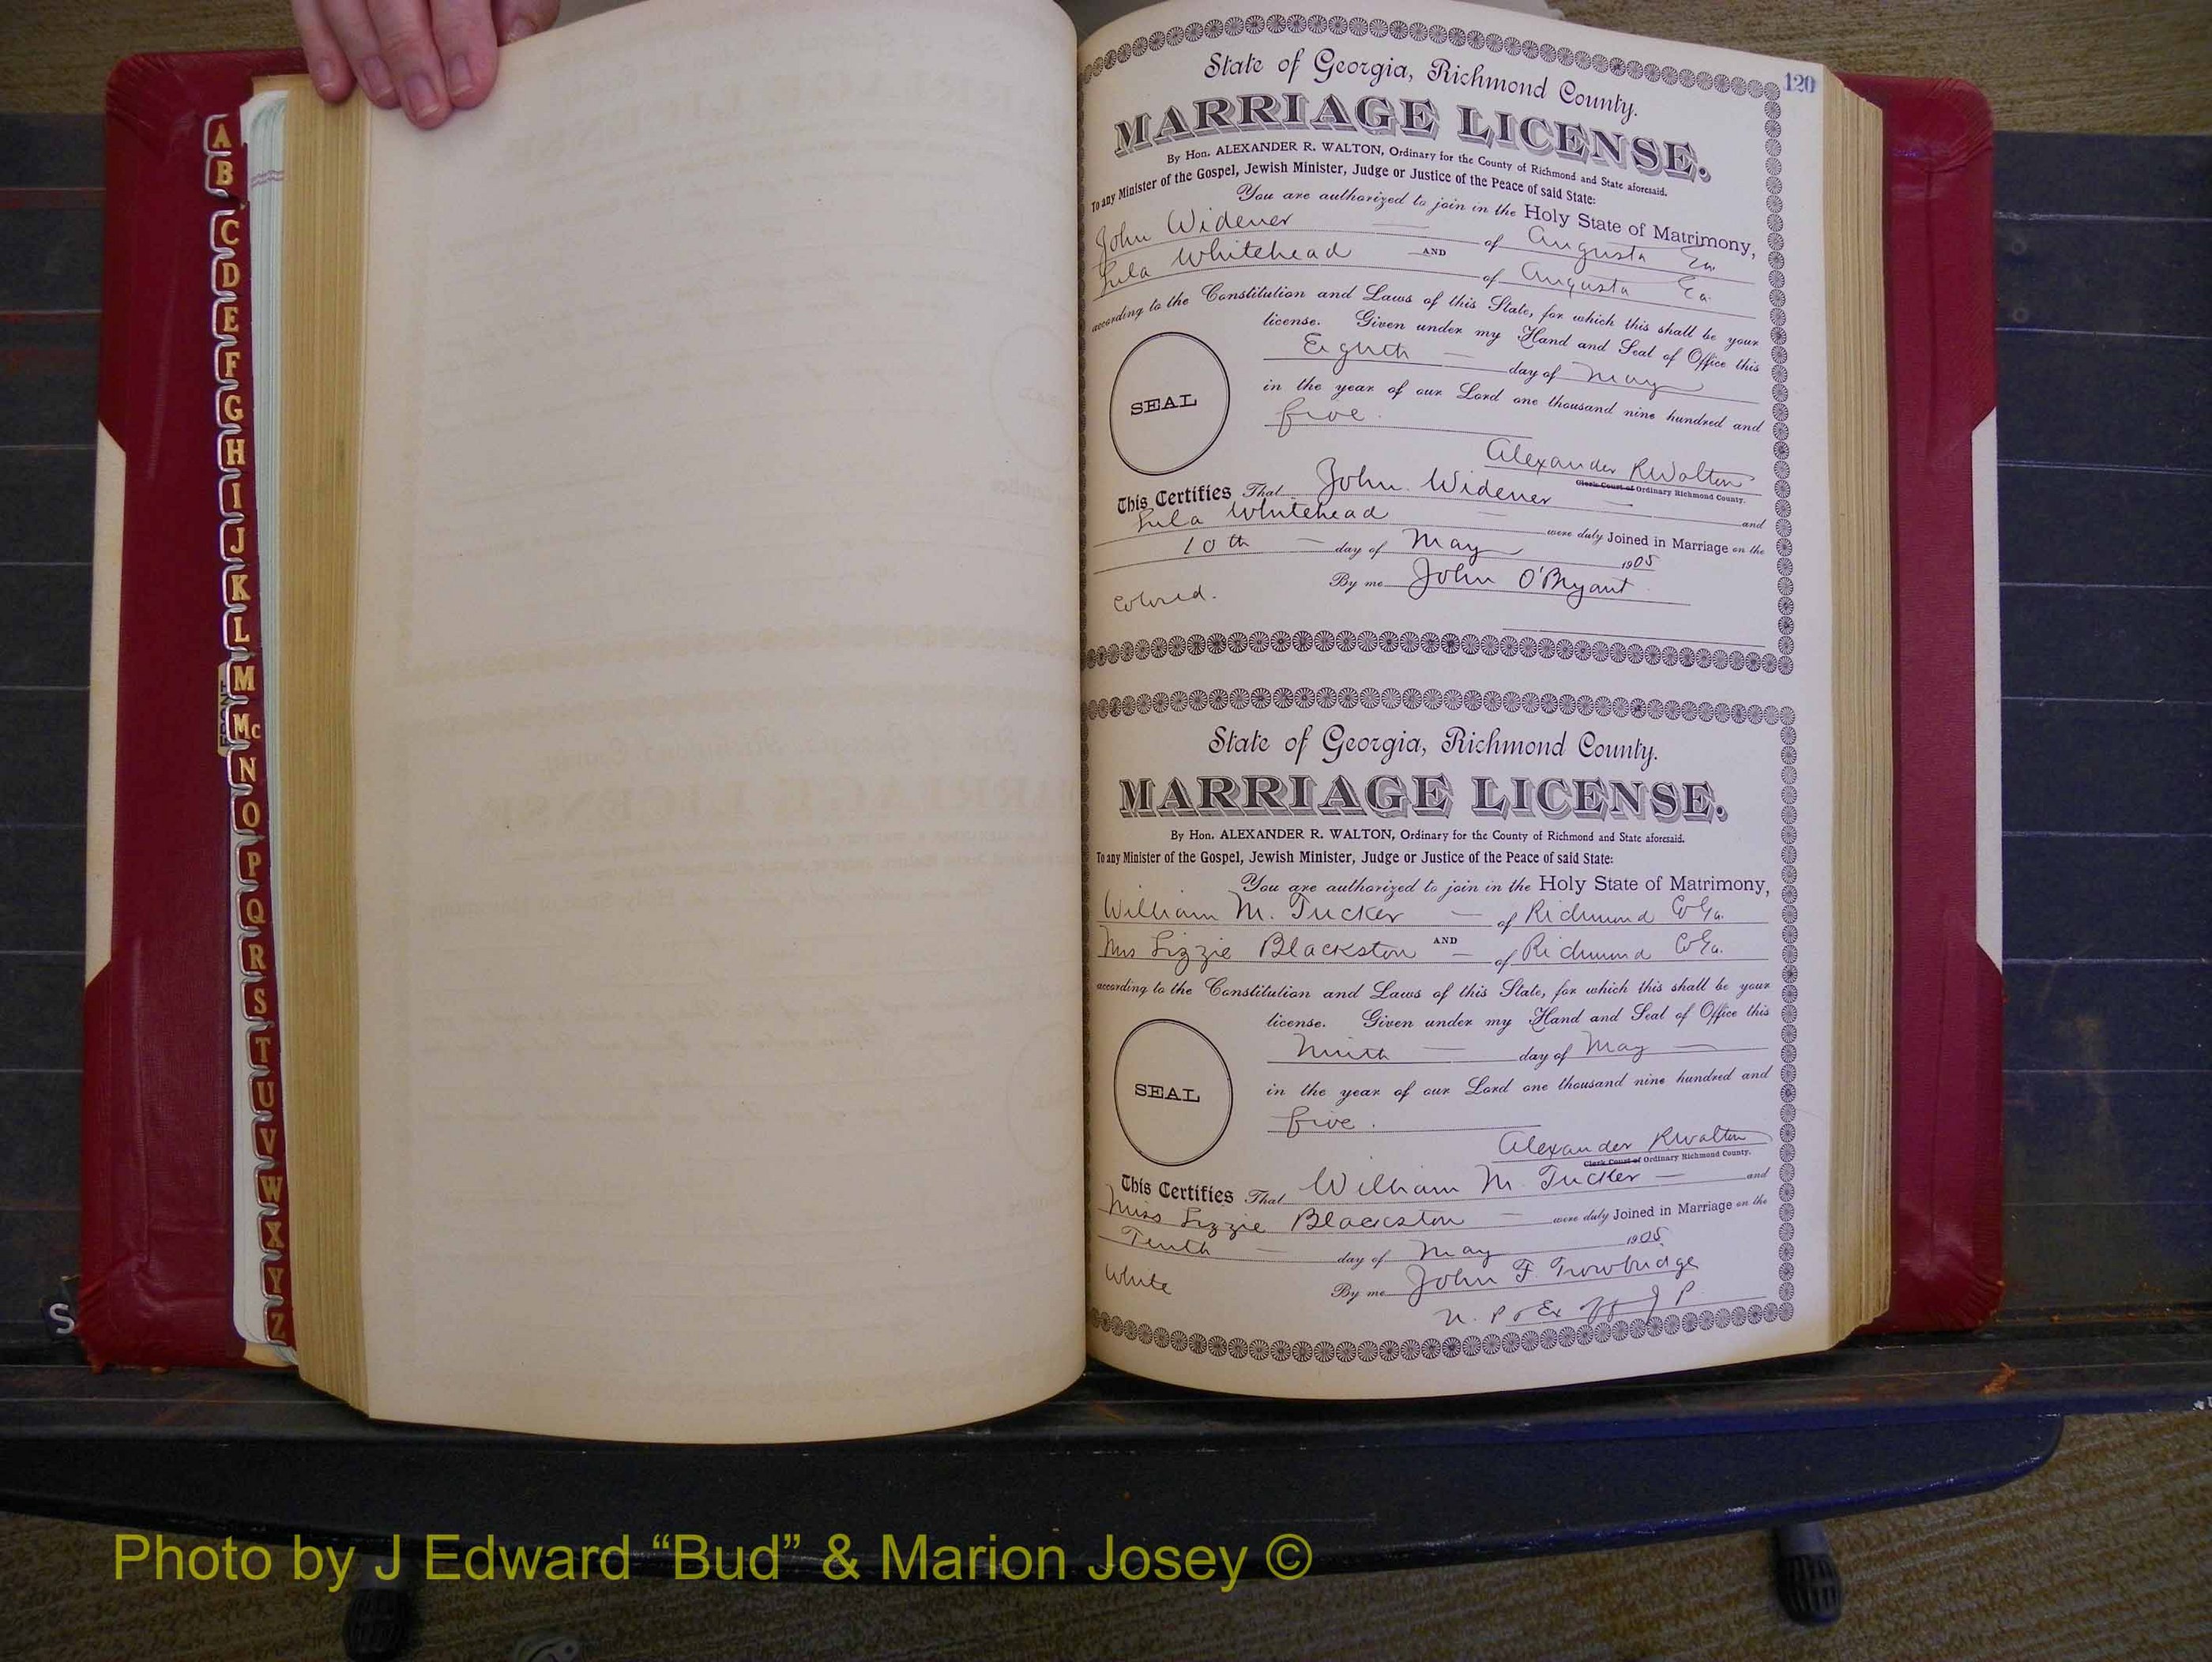 A
B
C
D
E
F
G
H
I
J
K
L
M
Mc
N
O
P
Q
R
S
T
U
V
W
X
Y
Z
S
120
State of Georgia, Richmond County.
MARRIAGE LICENSE.
By Hon. ALEXANDER R. WALTON, Ordinary for the County of Richmond and State aforesaid.
To any Minister of the Gospel, Jewish Minister, Judge or Justice of the Peace of said State:
You are authorized to join in the Holy State of Matrimony,
John Widener of Augusta Ga
AND
Lula Whitehead of Augusta Ga.
according to the Constitution and Laws of this State, for which this shall be your
license. Given under my Hand and Seal of Office this
Eighth day of May
in the year of our Lord one thousand nine hundred and
SEAL
five.
Alexander R Walton
Clerk Court of Ordinary Richmond County.
This Certifies That John Widener and
Lula Whitehead were duly Joined in Marriage on the
10th day of May 1905
By me John O'Bryant
Colored.
State of Georgia, Richmond County.
MARRIAGE LICENSE.
By Hon. ALEXANDER R. WALTON, Ordinary for the County of Richmond and State aforesaid.
To any Minister of the Gospel, Jewish Minister, Judge or Justice of the Peace of said State:
You are authorized to join in the Holy State of Matrimony,
William M. Tucker of Richmond Co Ga.
AND
Miss Lizzie Blackston of Richmond Co Ga.
according to the Constitution and Laws of this State, for which this shall be your
license. Given under my Hand and Seal of Office this
Ninth day of May
SEAL
in the year of our Lord one thousand nine hundred and
five.
Alexander R Walton
Clerk Court of Ordinary Richmond County.
This Certifies That William M. Tucker and
Miss Lizzie Blackston were duly Joined in Marriage on the
Tenth day of May 1905
White By me John F. Trowbridge
N. P & Ex off J P
Photo by J Edward “Bud” & Marion Josey ©